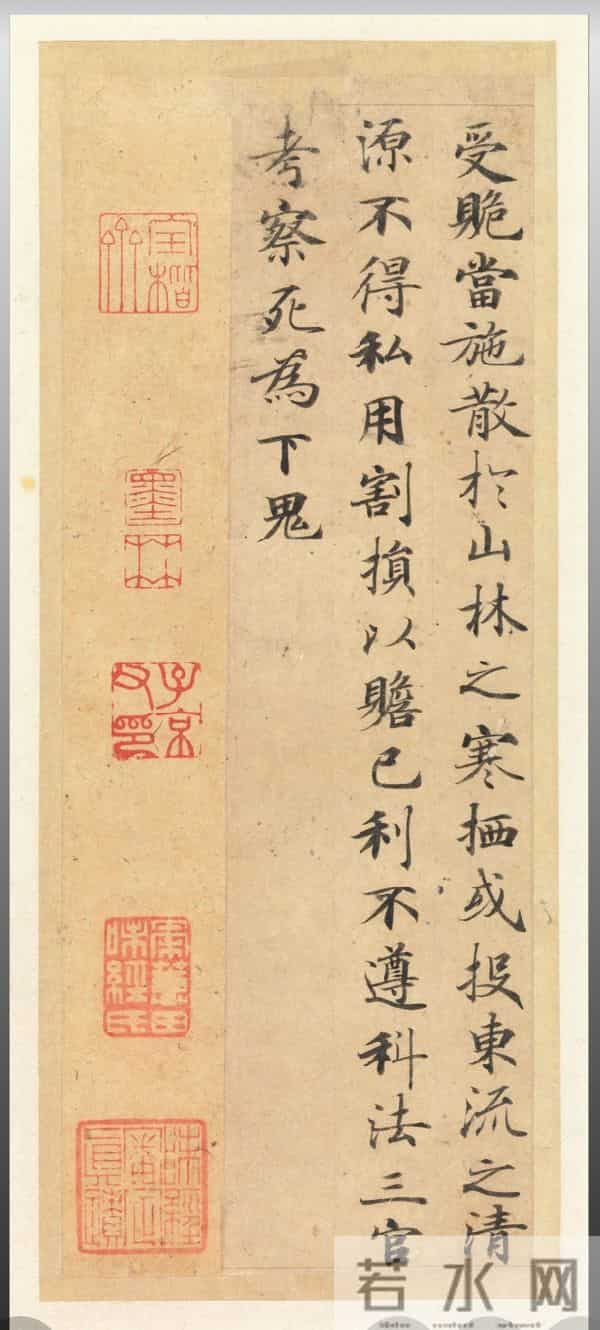 受當施散於山林之寒栖或投東流之清
源不得私用割損以贍已利不遵科法三官
考察死為下鬼
墨林
子京父印
若水网